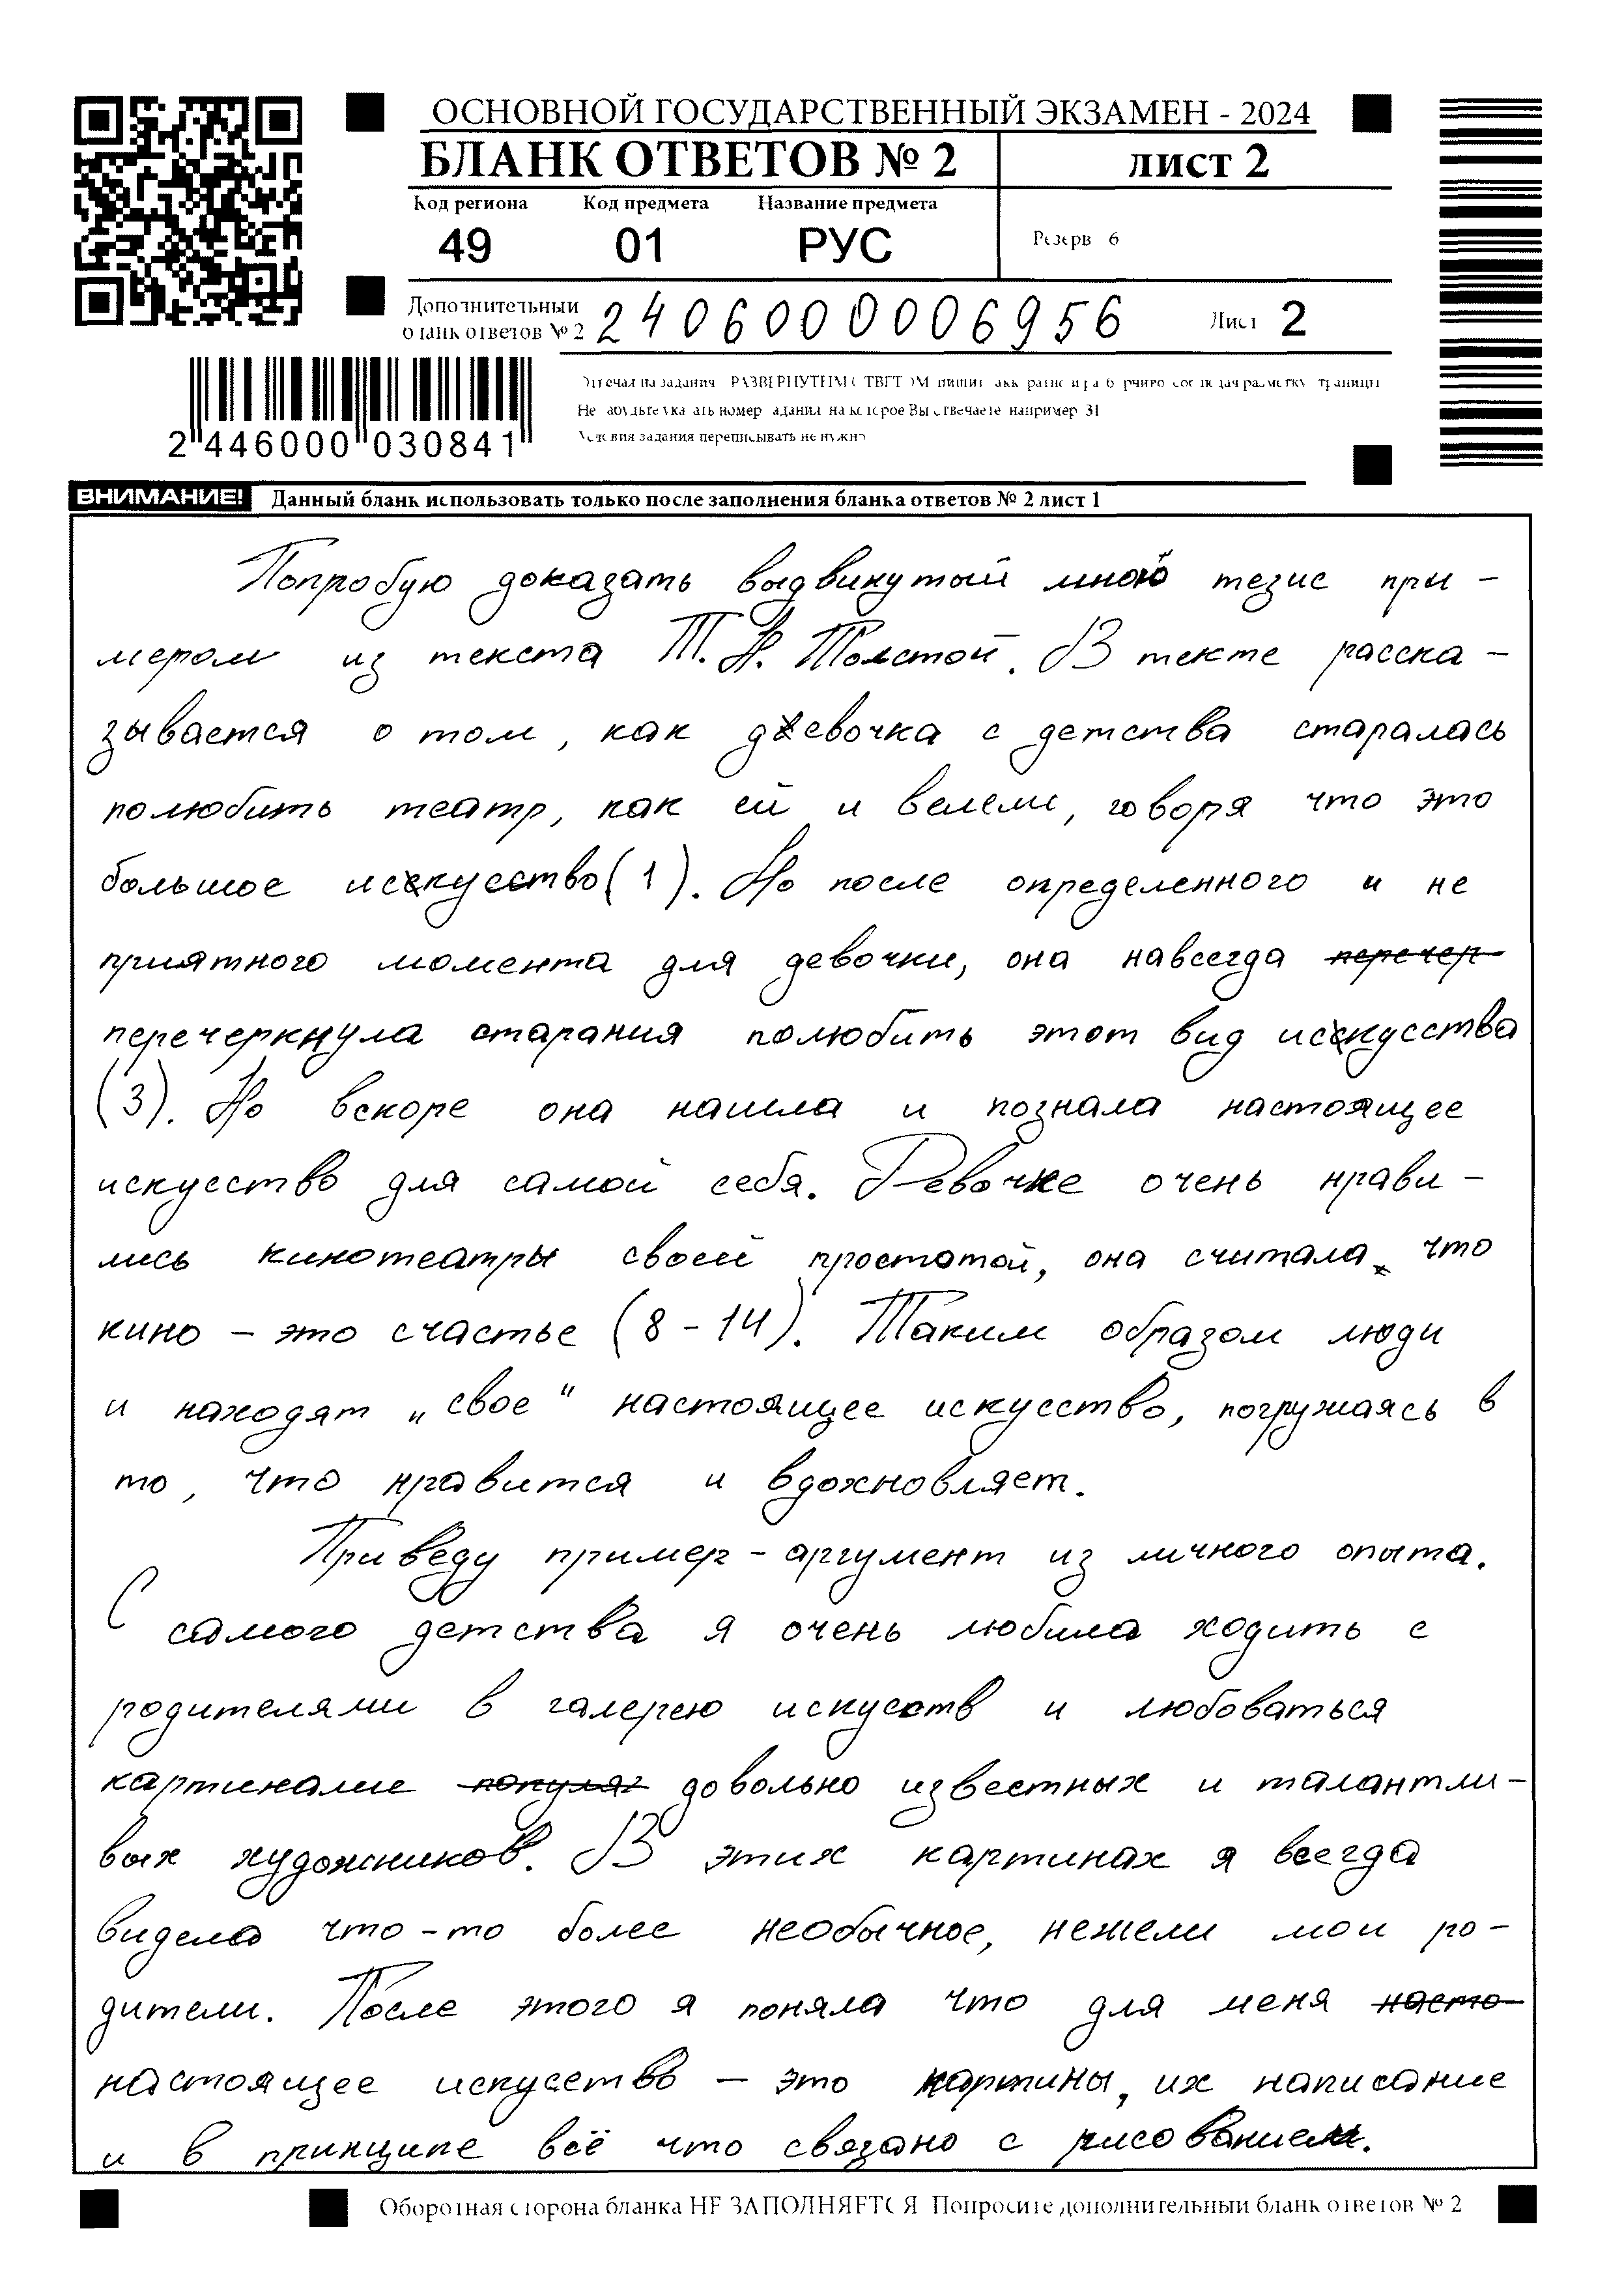 ОСНОВНОЙ ГОСУДАРСТВЕННЫЙ ЭКЗАМЕН - 2024
БЛАНК ОТВЕТОВ № 2
ЛИСТ 2
Код региона Код предмета Название предмета
49 01 РУС
Резерв 6
Дополнительный
бланк ответов № 2
2406000006956
Лист 2
2 446000 030841
Не забудьте указать номер задания на которое Вы отвечаете например 31
Условия задания переписывать не нужно
ВНИМАНИЕ! Данный бланк использовать только после заполнения бланка ответов № 2 лист 1
Попробую доказать выдвинутый мною тезис при-
мером из текста Т. Н. Толстой. В текте расска-
зывается о том, как девочка с детства старалась
полюбить театр, как ей и велели, говоря что это
большое искусство(1). Но после определенного и не
приятного момента для девочки, она навсегда перечер
перечеркнула старания полюбить этот вид искусства
(3). Но вскоре она нашла и познала настоящее
искусство для самой себя. Девочке очень нрави-
лись кинотеатры своей простотой, она считала, что
кино - это счастье (8-14). Таким образом люди
и находят „свое“ настоящее искусство, погружаясь в
то, что нравится и вдохновляет.
Приведу пример-аргумент из личного опыта.
С самого детства я очень любила ходить с
родителями в галерею искусств и любоваться
картинами популяр довольно известных и талантли-
вых художников. В этих картинах я всегда
видела что-то более необычное, нежели мои ро-
дители. После этого я поняла что для меня насто
настоящее искусство - это картины, их написание
и в принципе всё что связано с рисованием.
Оборотная сторона бланка НЕ ЗАПОЛНЯЕТСЯ Попросите дополнительный бланк ответов № 2